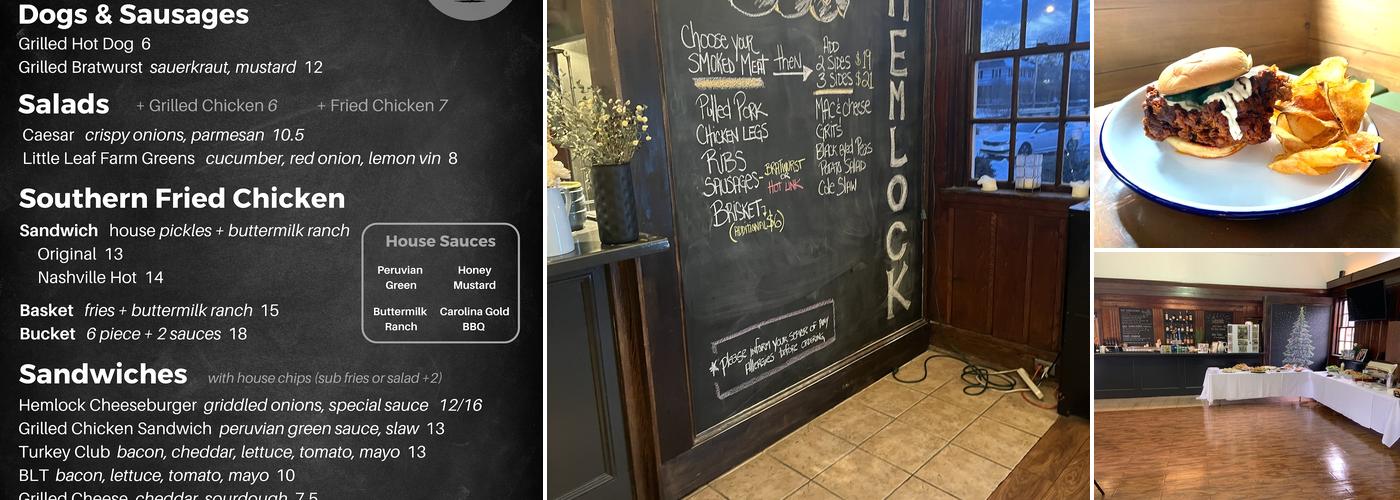 Dogs & Sausages
Grilled Hot Dog 6
Grilled Bratwurst sauerkraut, mustard 12
Salads + Grilled Chicken 6 + Fried Chicken 7
Caesar crispy onions, parmesan 10.5
Little Leaf Farm Greens cucumber, red onion, lemon vin 8
Southern Fried Chicken
Sandwich house pickles + buttermilk ranch
Original 13
Nashville Hot 14
Basket fries + buttermilk ranch 15
Bucket 6 piece + 2 sauces 18
House Sauces
Peruvian Green
Honey Mustard
Buttermilk Ranch
Carolina Gold BBQ
Sandwiches with house chips (sub fries or salad +2)
Hemlock Cheeseburger griddled onions, special sauce 12/16
Grilled Chicken Sandwich peruvian green sauce, slaw 13
Turkey Club bacon, cheddar, lettuce, tomato, mayo 13
BLT bacon, lettuce, tomato, mayo 10
Grilled Cheese cheddar, sourdough 7.5
Choose your
SMOKED MEAT then
ADD
2 Sides $19
3 Sides $21
Pulled Pork
Chicken Legs
Ribs
Sausages - Bratwurst
or
Hot Link
Brisket -
(additional $6)
Mac & Cheese
Grits
Black Eyed Peas
Potato Salad
Cole Slaw
HEMLOCK
* Please inform your server of any
allergies before ordering